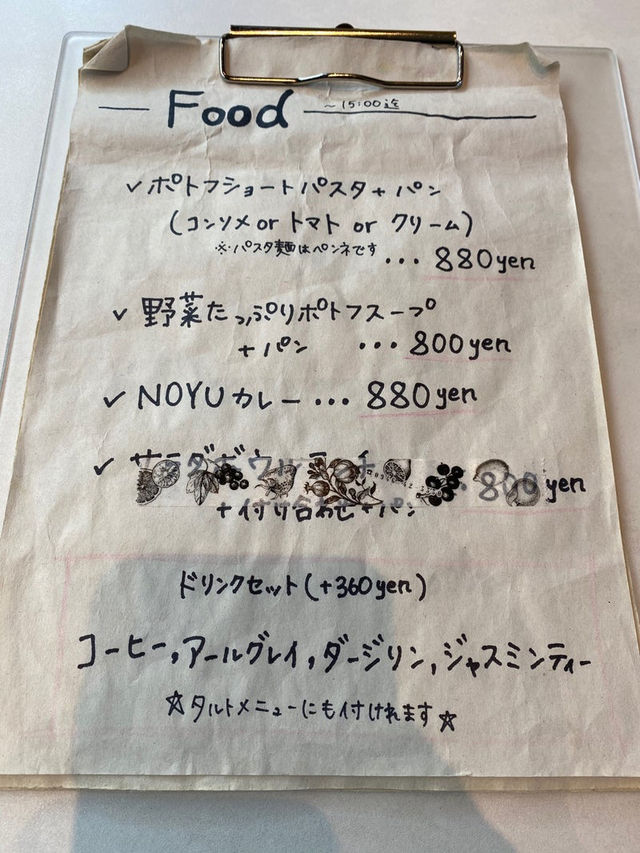 Food ～15:00迄
✓ ポトフショートパスタ + パン
(コンソメ or トマト or クリーム)
※パスタ麺はペンネです
... 880yen
✓ 野菜たっぷりポトフスープ
+ パン ... 800yen
✓ NOYUカレー ... 880yen
✓ サラダボウルランチ 800yen
+付け合わせ+パン
ドリンクセット(+360yen)
コーヒー,アールグレイ,ダージリン,ジャスミンティー
☆タルトメニューにも付けれます☆